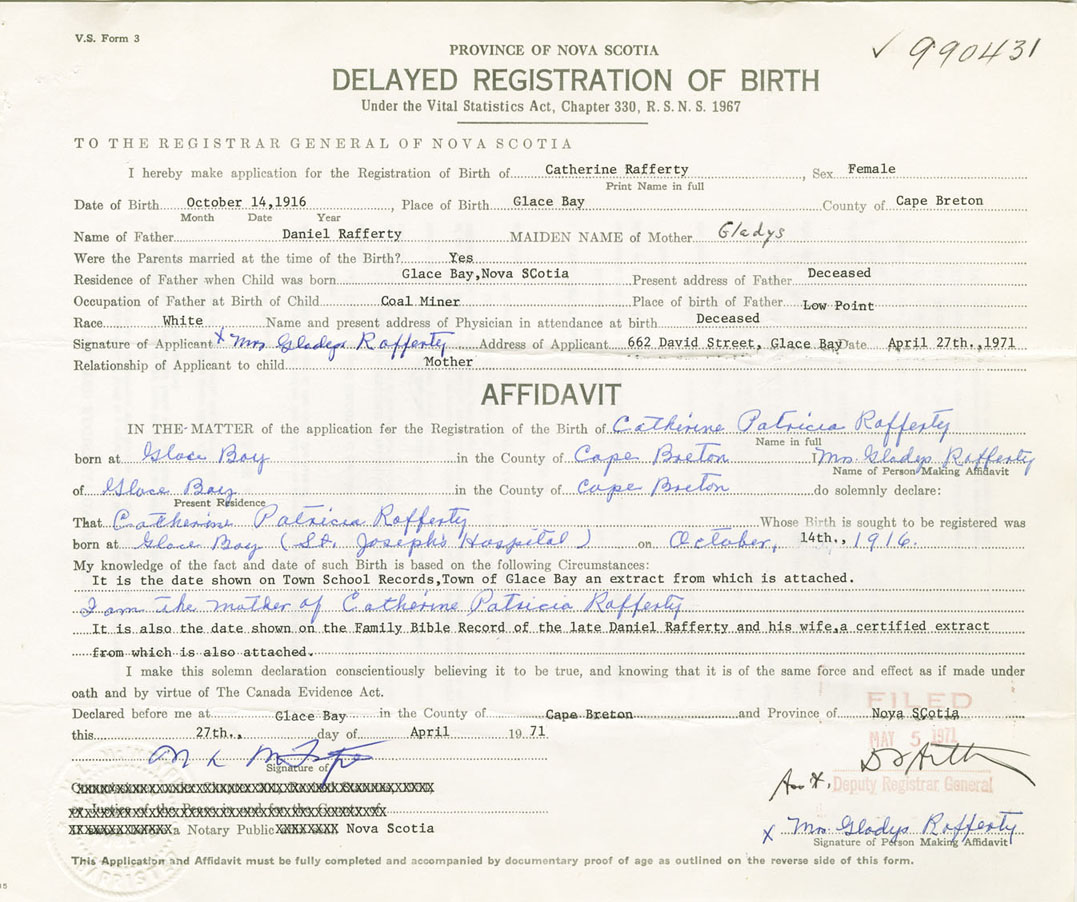 V.S. Form 3
✓ 990431
PROVINCE OF NOVA SCOTIA
DELAYED REGISTRATION OF BIRTH
Under the Vital Statistics Act, Chapter 330, R. S. N. S. 1967
TO THE REGISTRAR GENERAL OF NOVA SCOTIA
I hereby make application for the Registration of Birth of Catherine Rafferty, Sex Female
Print Name in full
Date of Birth October 14,1916, Place of Birth Glace Bay County of Cape Breton
Month Date Year
Name of Father Daniel Rafferty MAIDEN NAME of Mother Gladys
Were the Parents married at the time of the Birth? Yes
Residence of Father when Child was born Glace Bay,Nova SCotia Present address of Father Deceased
Occupation of Father at Birth of Child Coal Miner Place of birth of Father Low Point
Race White Name and present address of Physician in attendance at birth Deceased
Signature of Applicant x Mrs Gladys Rafferty Address of Applicant 662 David Street, Glace Bay Date April 27th.,1971
Relationship of Applicant to child Mother
AFFIDAVIT
IN THE MATTER of the application for the Registration of the Birth of Catherine Patricia Rafferty
Name in full
born at Glace Bay in the County of Cape Breton I Mrs. Gladys Rafferty
Name of Person Making Affidavit
of Glace Bay in the County of Cape Breton do solemnly declare:
Present Residence
That Catherine Patricia Rafferty Whose Birth is sought to be registered was
born at Glace Bay (St. Joseph's Hospital) on October, 14th., 1916.
My knowledge of the fact and date of such Birth is based on the following Circumstances:
It is the date shown on Town School Records,Town of Glace Bay an extract from which is attached.
I am the mother of Catherine Patricia Rafferty
It is also the date shown on the Family Bible Record of the late Daniel Rafferty and his wife,a certified extract
from which is also attached.
I make this solemn declaration conscientiously believing it to be true, and knowing that it is of the same force and effect as if made under
oath and by virtue of The Canada Evidence Act.
Declared before me at Glace Bay in the County of Cape Breton and Province of Nova SCotia
this 27th., day of April 1971
FILED
MAY 5 1971
Signature of
Deputy Registrar General
a Notary Public Nova Scotia
x Mrs. Gladys Rafferty
Signature of Person Making Affidavit
This Application and Affidavit must be fully completed and accompanied by documentary proof of age as outlined on the reverse side of this form.